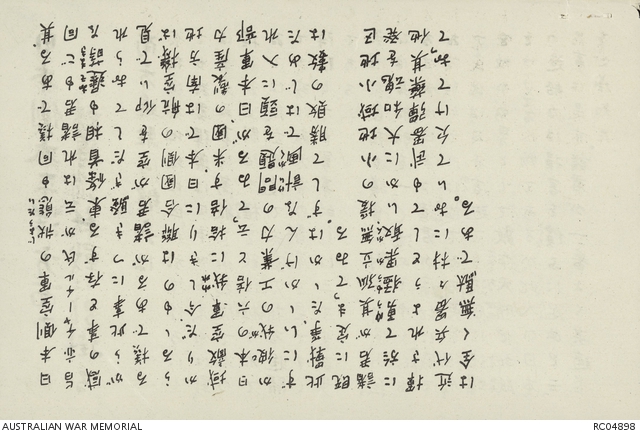 AUSTRALIAN WAR MEMORIAL
RC04898
日本側空軍の狀態も同様である、其
じょうたい
旨亦チャーチル氏が云はれ諸君もご同
感の事と存ずる、東條首相も遲蒔な
おそまき
がら此事につき騒ぎだしておられ
る様であるが諸君が空を仰いで見
らるゝものは聯合國側の航空機ば
かりだ、今しきりに日本では南方地
域敵空軍我に拾倍す、米國の製産力
われ
日本の六倍と云ってゐるが、日本軍部
か彼我の工業力の問題を頭に入れ
ひが
ずにいゝかげんな計画ではじめた
けいかく
此戰爭、たゝかはずして勝敗の數は
既に定まってゐる。
諸君が其孤立無援の小地域小地区
に於て勇猛果敢いかに大和魂を発
ゆうもうかかん
揮されようとしても武器彈藥其他
近代兵器々材において欠けておって
は全く無駄である。